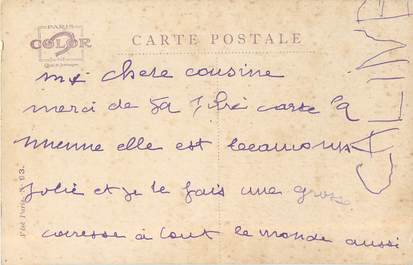 PARIS
COLOR
CARTE POSTALE
ma chere cousine
merci de ta carte la
mienne elle est beaucoup
jolie et je te fais une grosse
caresse à tout le monde aussi
CALINE